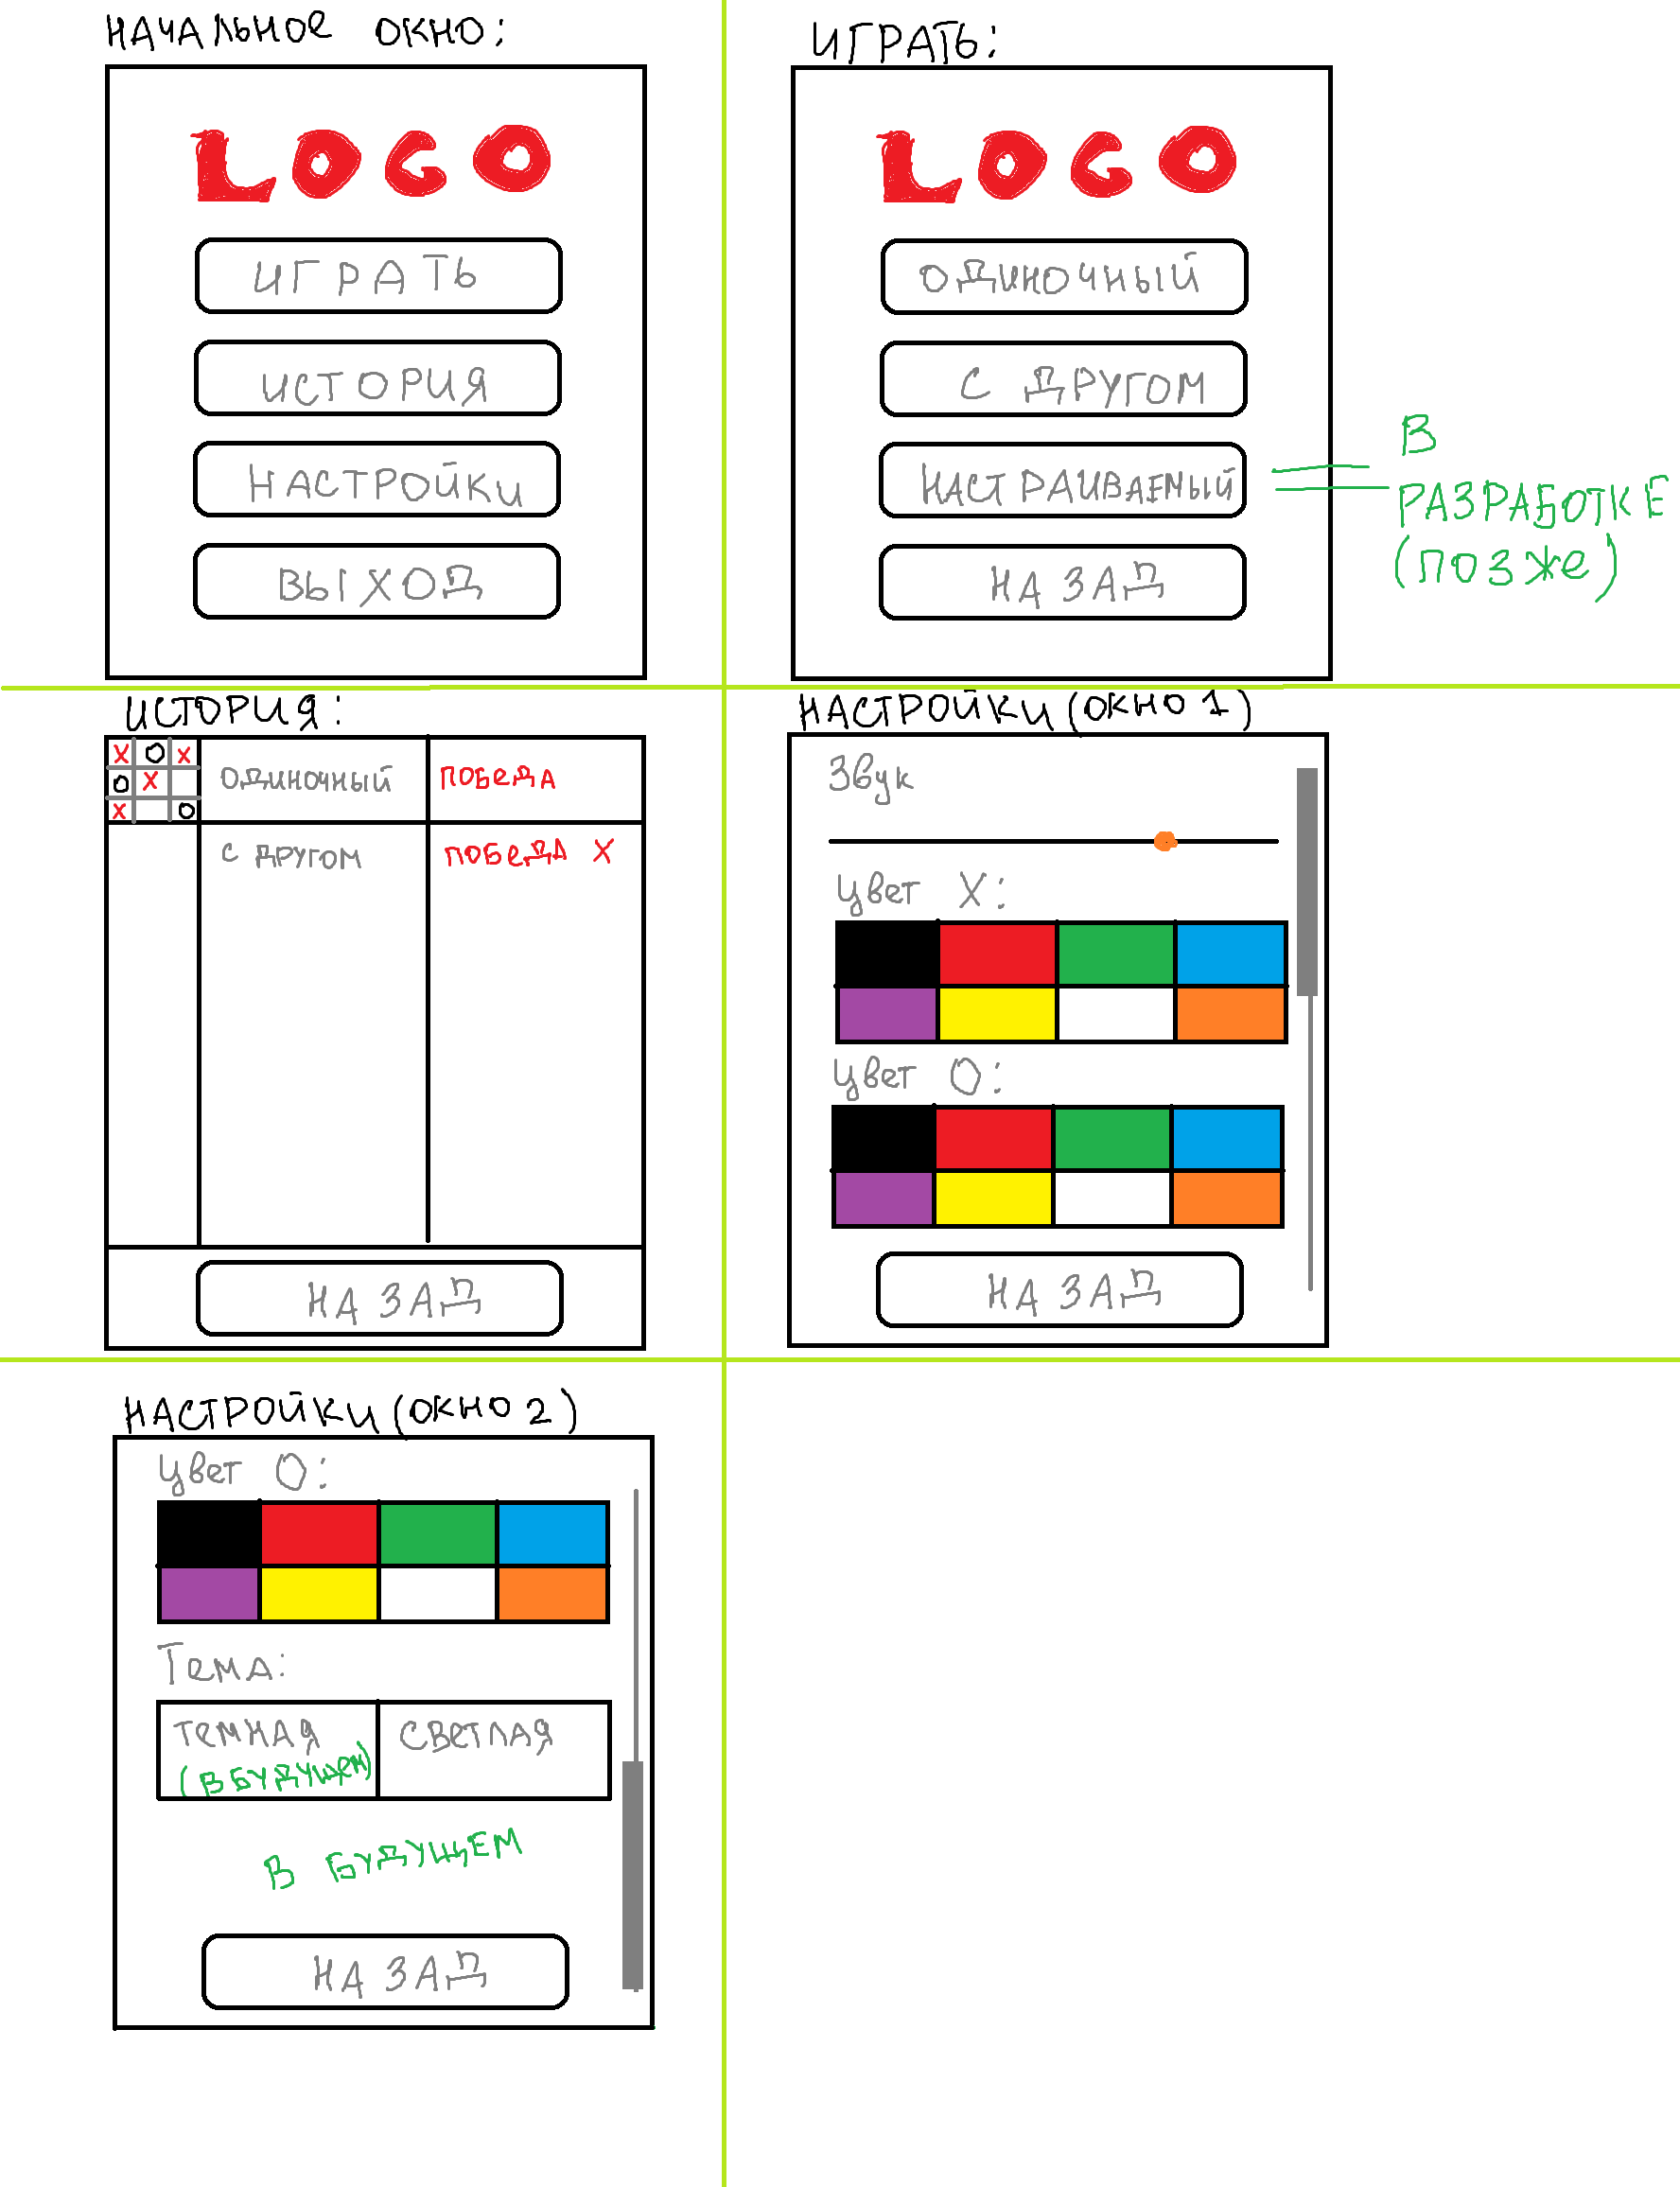 НАЧАЛЬНОЕ ОКНО:
LOGO
ИГРАТЬ
ИСТОРИЯ
НАСТРОЙКИ
ВЫХОД
ИГРАТЬ:
LOGO
ОДИНОЧНЫЙ
С ДРУГОМ
НАСТРАИВАЕМЫЙ
НАЗАД
В
РАЗРАБОТКЕ
(ПОЗЖЕ)
ИСТОРИЯ:
X O X
O X
X O
ОДИНОЧНЫЙ
ПОБЕДА
С ДРУГОМ
ПОБЕДА X
НАЗАД
НАСТРОЙКИ (ОКНО 1)
Звук
Цвет X:
Цвет O:
НАЗАД
НАСТРОЙКИ (ОКНО 2)
Цвет O:
Тема:
ТЕМНАЯ
(В БУДУЩЕМ)
СВЕТЛАЯ
В БУДУЩЕМ
НАЗАД